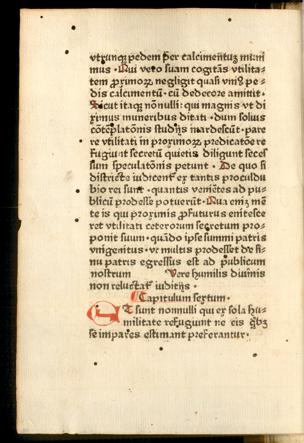 utrunqꝫ pedem per calcimentuꝫ muni
mus · Qui vero suam cogitās utilita
tem ꝓximorꝫ negligit quasi unius pe
dis calcimentū · cū dedecore amittit ·
Sicut itaqꝫ nōnulli · qui magnis ut di
ximus muneribus ditati · dum solius
cōtēplatōnis studijs inardescūt · pare
re utilitati in proximorꝫ predicatōe re
fugiunt secretū quietis diligunt seces
sum speculatōnis petunt · De quo si
districte iudicent̄ ex tantis proculdu
bio rei sunt · quantis venientes ad pu
blicū prodesse potuerūt · Qua enim mē
te is qui proximis ꝓfuturus enitesce
ret utilitati ceterorum secretum pro
ponit suum · quādo ipse summi patris
unigenitus · ut multis prodesset de si
nu patris egressus est ad publicum
nostrum Vere humilis diuinis
non reluctat̄ iudicijs ·
Capitulum sextum ·
Et sunt nonnulli qui ex sola hu
militate refugiunt ne eis qͥbꝫ
se impares estimant preferantur ·